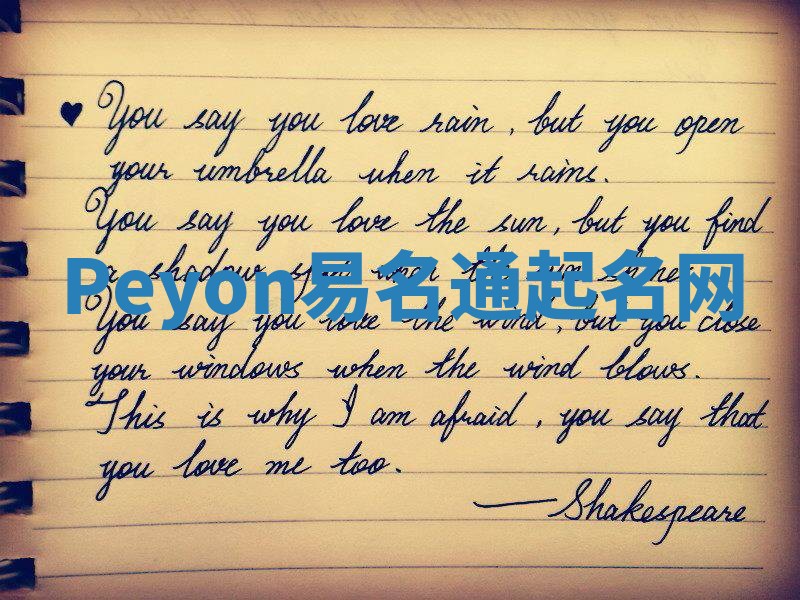 ♥ You say you love rain, but you open
your umbrella when it rains.
You say you love the sun, but you find
a shadow spot when the sun shines.
Peyon易名通起名网
You say you love the wind, but you close
your windows when the wind blows.
This is why I am afraid, you say that
you love me too.
— Shakespeare